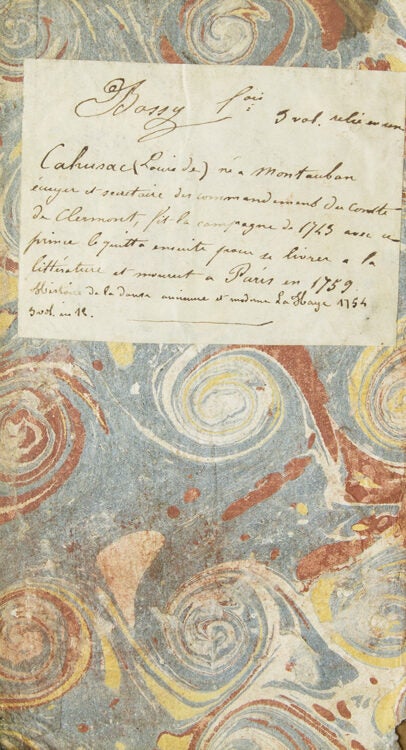 Bossy fois
3 vol. relié en un
Cahusac (Louis de) né a Montauban
écuyer et secrétaire des commandement du comte
de Clermont, fit la campagne de 1743 avec ce
prince le quitta ensuite pour se livrer a la
littérature et mourut à Paris en 1759
Histoire de la danse ancienne et moderne La Haye 1754
3 vol. in 12.